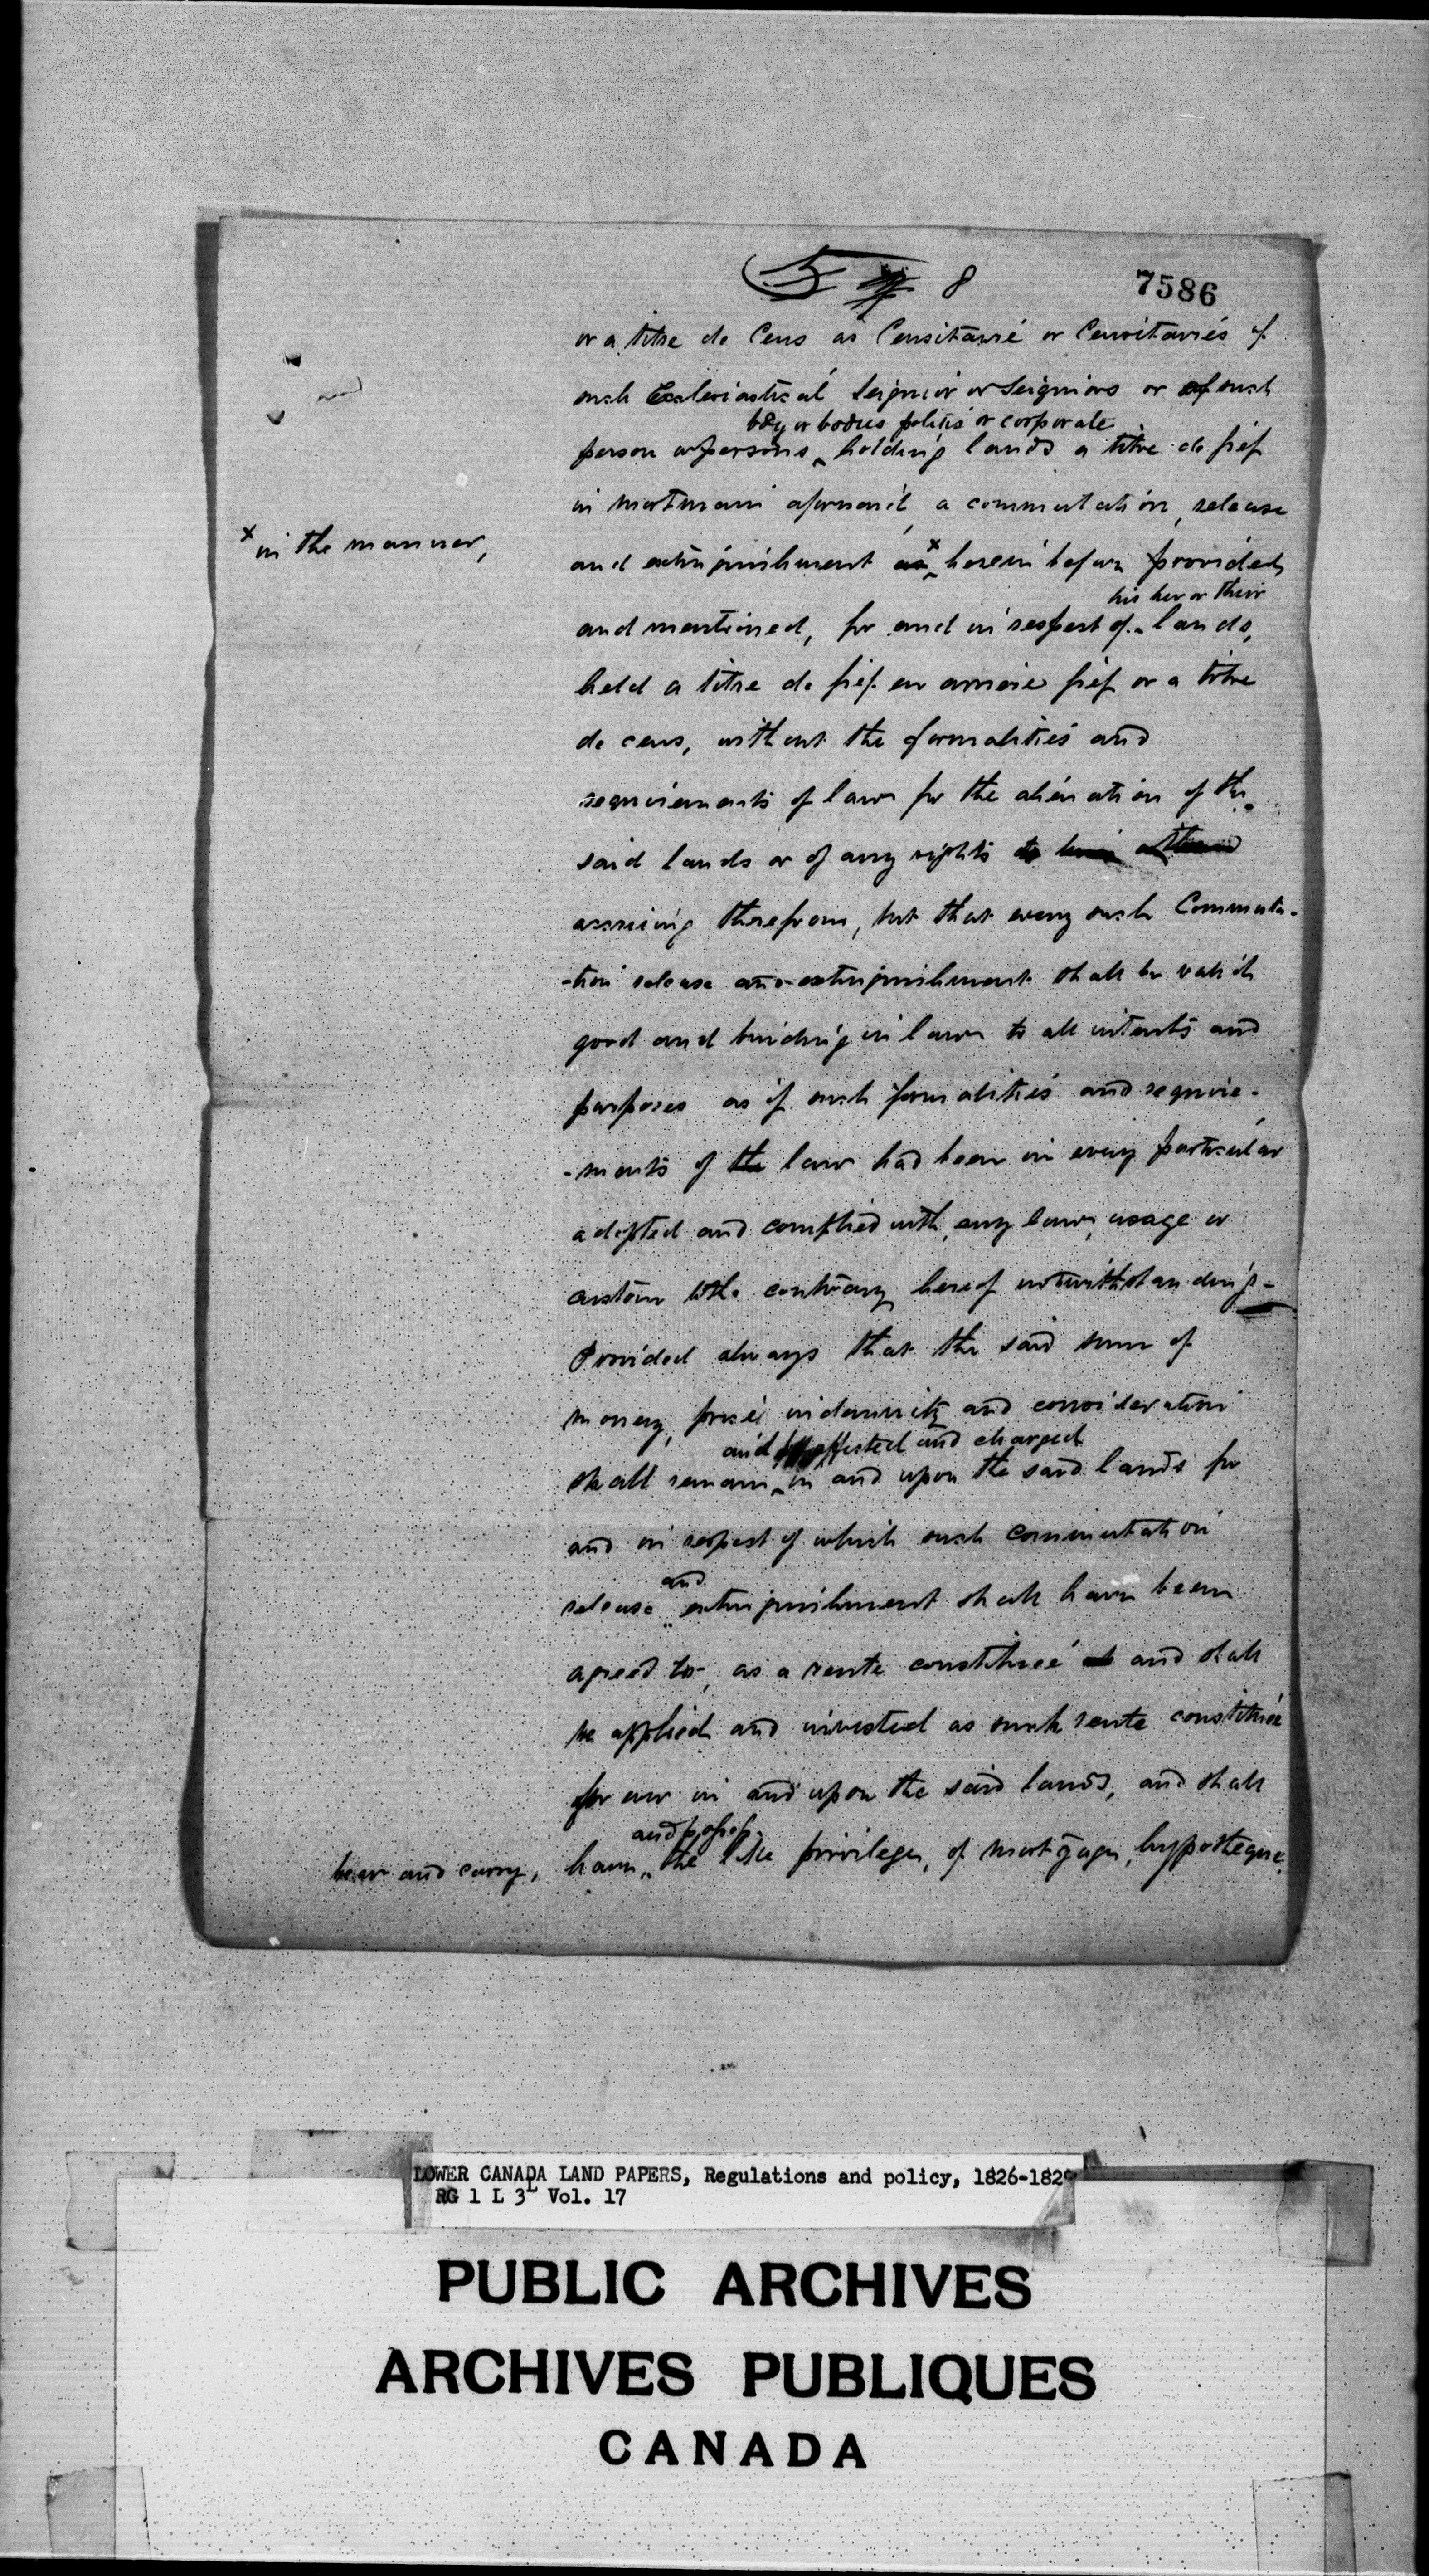 5 8 7586
or a titre de Cens as Censitaire or Censitaires of
such Ecclesiastical Seignior or Seigniors or of such
body or bodies politic or corporate
person or persons holding lands a titre de fief
in mortmain aforesaid, a commutation, release
x in the manner,
and extinguishment as x herein before provided
his her or their
and mentioned, for and in respect of lands,
held a titre de fief en arriere fief or a titre
de cens, without the formalities and
requirements of law for the alienation of the
said lands or of any rights to
accruing therefrom, but that every such Commuta-
-tion release and extinguishment shall be valid
good and binding in law to all intents and
purposes as if such formalities and require-
-ments of the law had been in every particular
adopted and complied with, any law, usage or
custom to the contrary hereof notwithstanding -
Provided always that the said sum of
money, price indemnity and consideration
and affected and charged
shall remain in and upon the said lands for
and in respect of which such commutation
and
release extinguishment shall have been
agreed to, as a rente constituée and shall
be applied and invested as such rente constituée
for ever in and upon the said lands, and shall
and possess
bear and carry, have the like privilege, of mortgage, hypotheque
LOWER CANADA LAND PAPERS, Regulations and policy, 1826-1829
RG 1 L 3L Vol. 17
PUBLIC ARCHIVES
ARCHIVES PUBLIQUES
CANADA